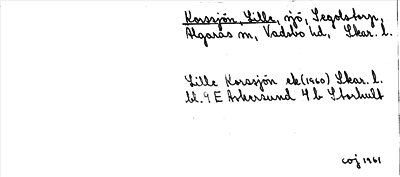 Korssjön, Lille, sjö, Segolstorp,
Algarås sn, Vadsbo hd, Skar. l.
Lille Korssjön ek (1960) Skar. l.
bl. 9 E Askersund 4 b Storhult
coj 1961